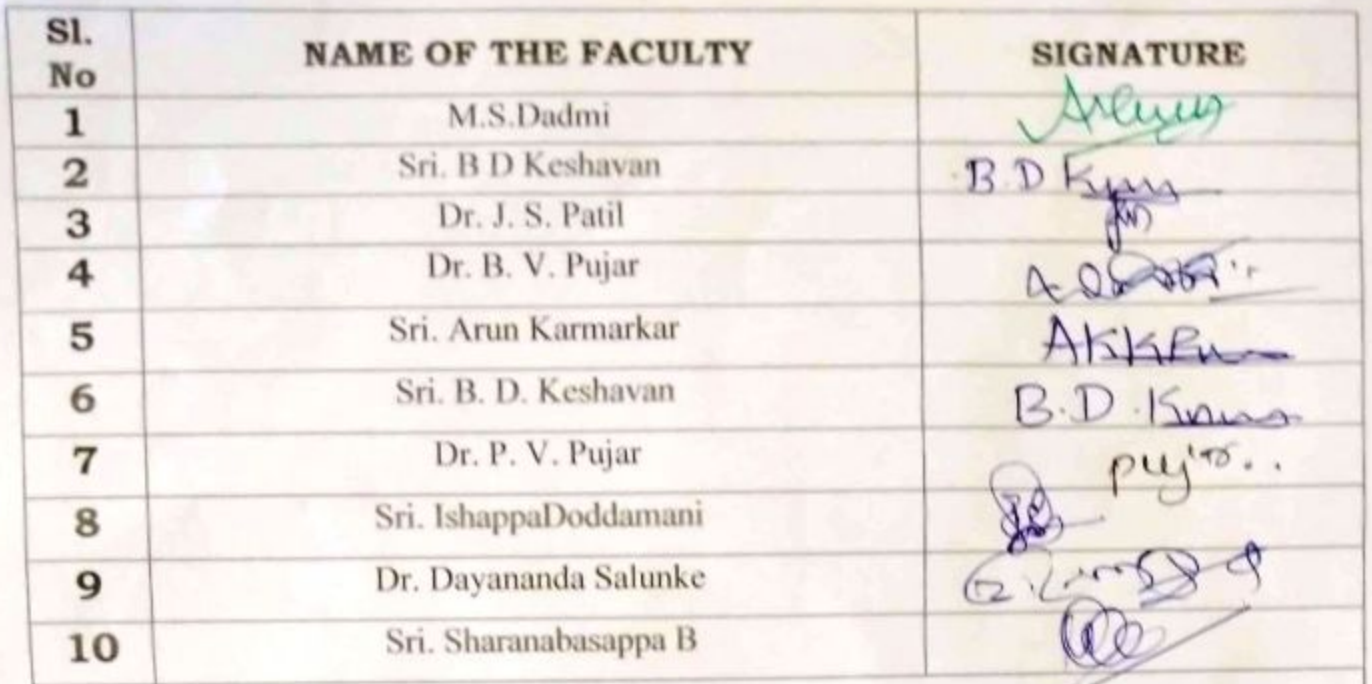 Sl. No NAME OF THE FACULTY SIGNATURE
1 M.S.Dadmi
2 Sri. B D Keshavan B D
3 Dr. J. S. Patil
4 Dr. B. V. Pujar
5 Sri. Arun Karmarkar
6 Sri. B. D. Keshavan B.D.
7 Dr. P. V. Pujar
8 Sri. IshappaDoddamani
9 Dr. Dayananda Salunke
10 Sri. Sharanabasappa B